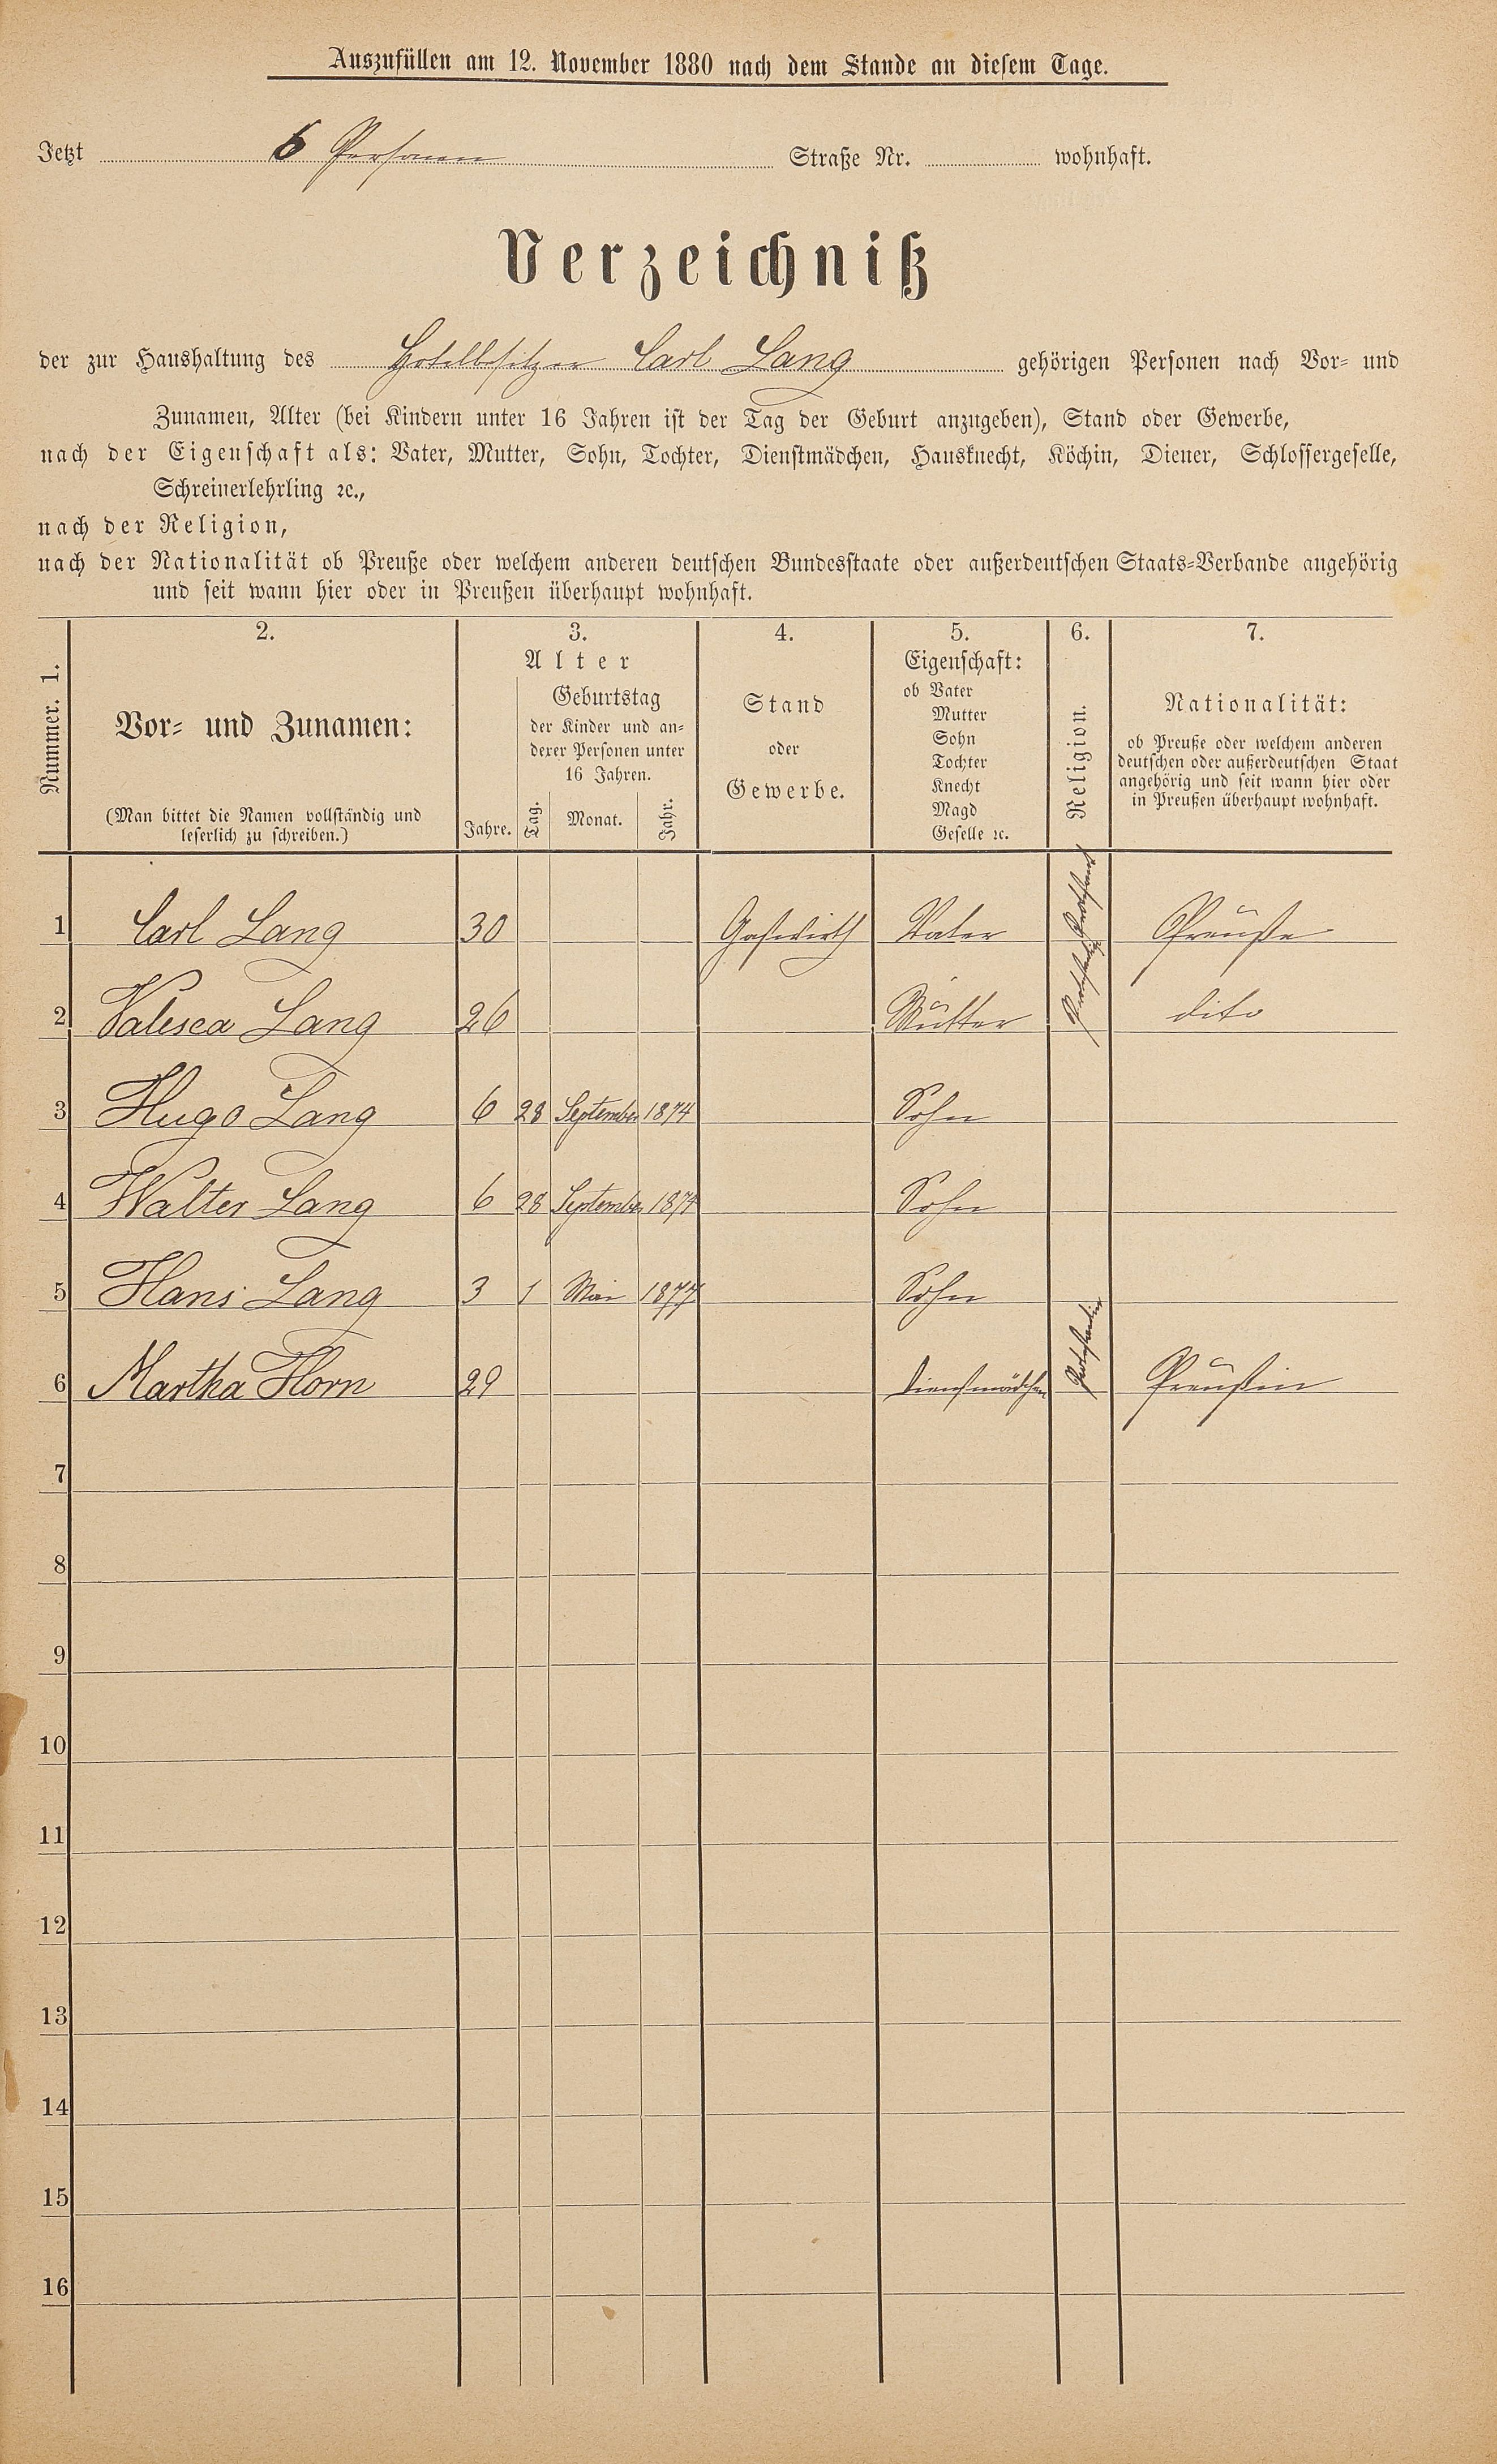 Auszufüllen am 12. November 1880 nach dem Stande an diesem Tage.
Jetzt 6 Personen Straße Nr. wohnhaft.
Verzeichniß
der zur Haushaltung des Hotelbesitzer Carl Lang gehörigen Personen nach Vor- und
Zunamen, Alter (bei Kindern unter 16 Jahren ist der Tag der Geburt anzugeben), Stand oder Gewerbe,
nach der Eigenschaft als: Vater, Mutter, Sohn, Tochter, Dienstmädchen, Hausknecht, Köchin, Diener, Schlossergeselle,
Schreinerlehrling ꝛc.,
nach der Religion,
nach der Nationalität ob Preuße oder welchem anderen deutschen Bundesstaate oder außerdeutschen Staats-Verbande angehörig
und seit wann hier oder in Preußen überhaupt wohnhaft.
Nummer. 1.
2.
Vor- und Zunamen:
(Man bittet die Namen vollständig und
leserlich zu schreiben.)
3.
Alter
Jahre.
Geburtstag
der Kinder und an-
derer Personen unter
16 Jahren.
Tag. Monat. Jahr.
4.
Stand
oder
Gewerbe.
5.
Eigenschaft:
ob Vater
Mutter
Sohn
Tochter
Knecht
Magd
Geselle ꝛc.
6.
Religion.
7.
Nationalität:
ob Preuße oder welchem anderen
deutschen oder außerdeutschen Staat
angehörig und seit wann hier oder
in Preußen überhaupt wohnhaft.
1 Carl Lang 30 Gastwirth Vater Preuße
2 Valesca Lang 26 Mutter dito
3 Hugo Lang 6 28 September 1874 Sohn
4 Walter Lang 6 28 September 1874 Sohn
5 Hans Lang 3 1 Mai 1877 Sohn
6 Martha Horn 29 Dienstmädchen Preußin
7
8
9
10
11
12
13
14
15
16